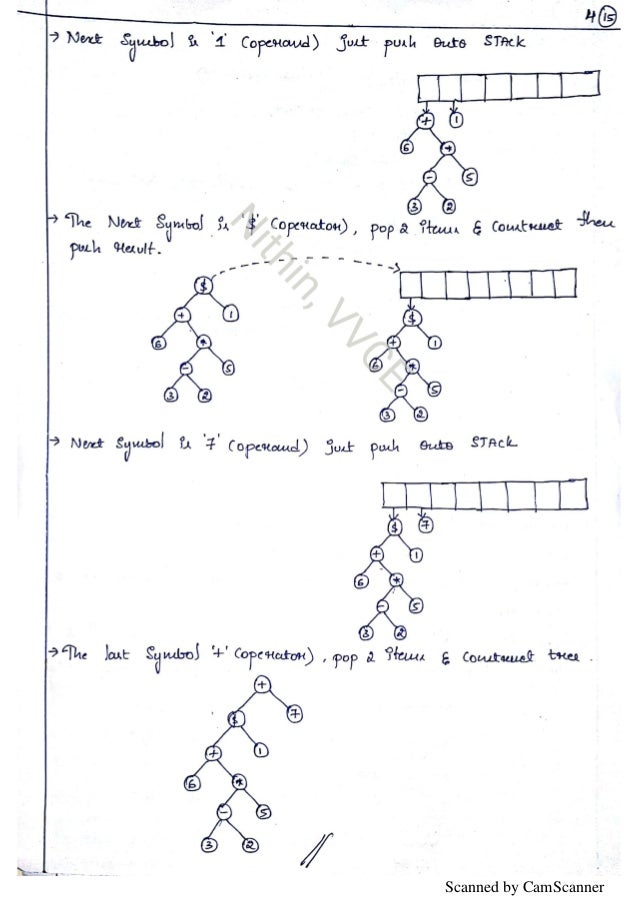 4 15
→ Next Symbol is '1' (operand) just push onto STACK
+ 1
6 *
- 5
3 2
→ The Next Symbol is '$' (operator), pop 2 items & construct then
push result.
$
+ 1
6 *
- 5
3 2
$
+ 1
6 *
- 5
3 2
Nithin, VVCE
→ Next Symbol is '7' (operand) just push onto STACK
$ 7
+ 1
6 *
- 5
3 2
→ The last Symbol '+' (operator), pop 2 items & construct tree.
+
$ 7
+ 1
6 *
- 5
3 2
Scanned by CamScanner